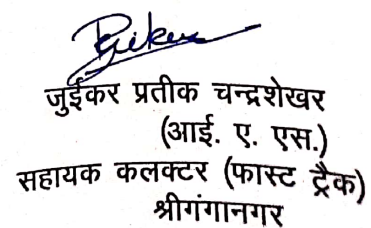 जुईकर प्रतीक चन्द्रशेखर
(आई. ए. एस.)
सहायक कलक्टर (फास्ट ट्रैक)
श्रीगंगानगर